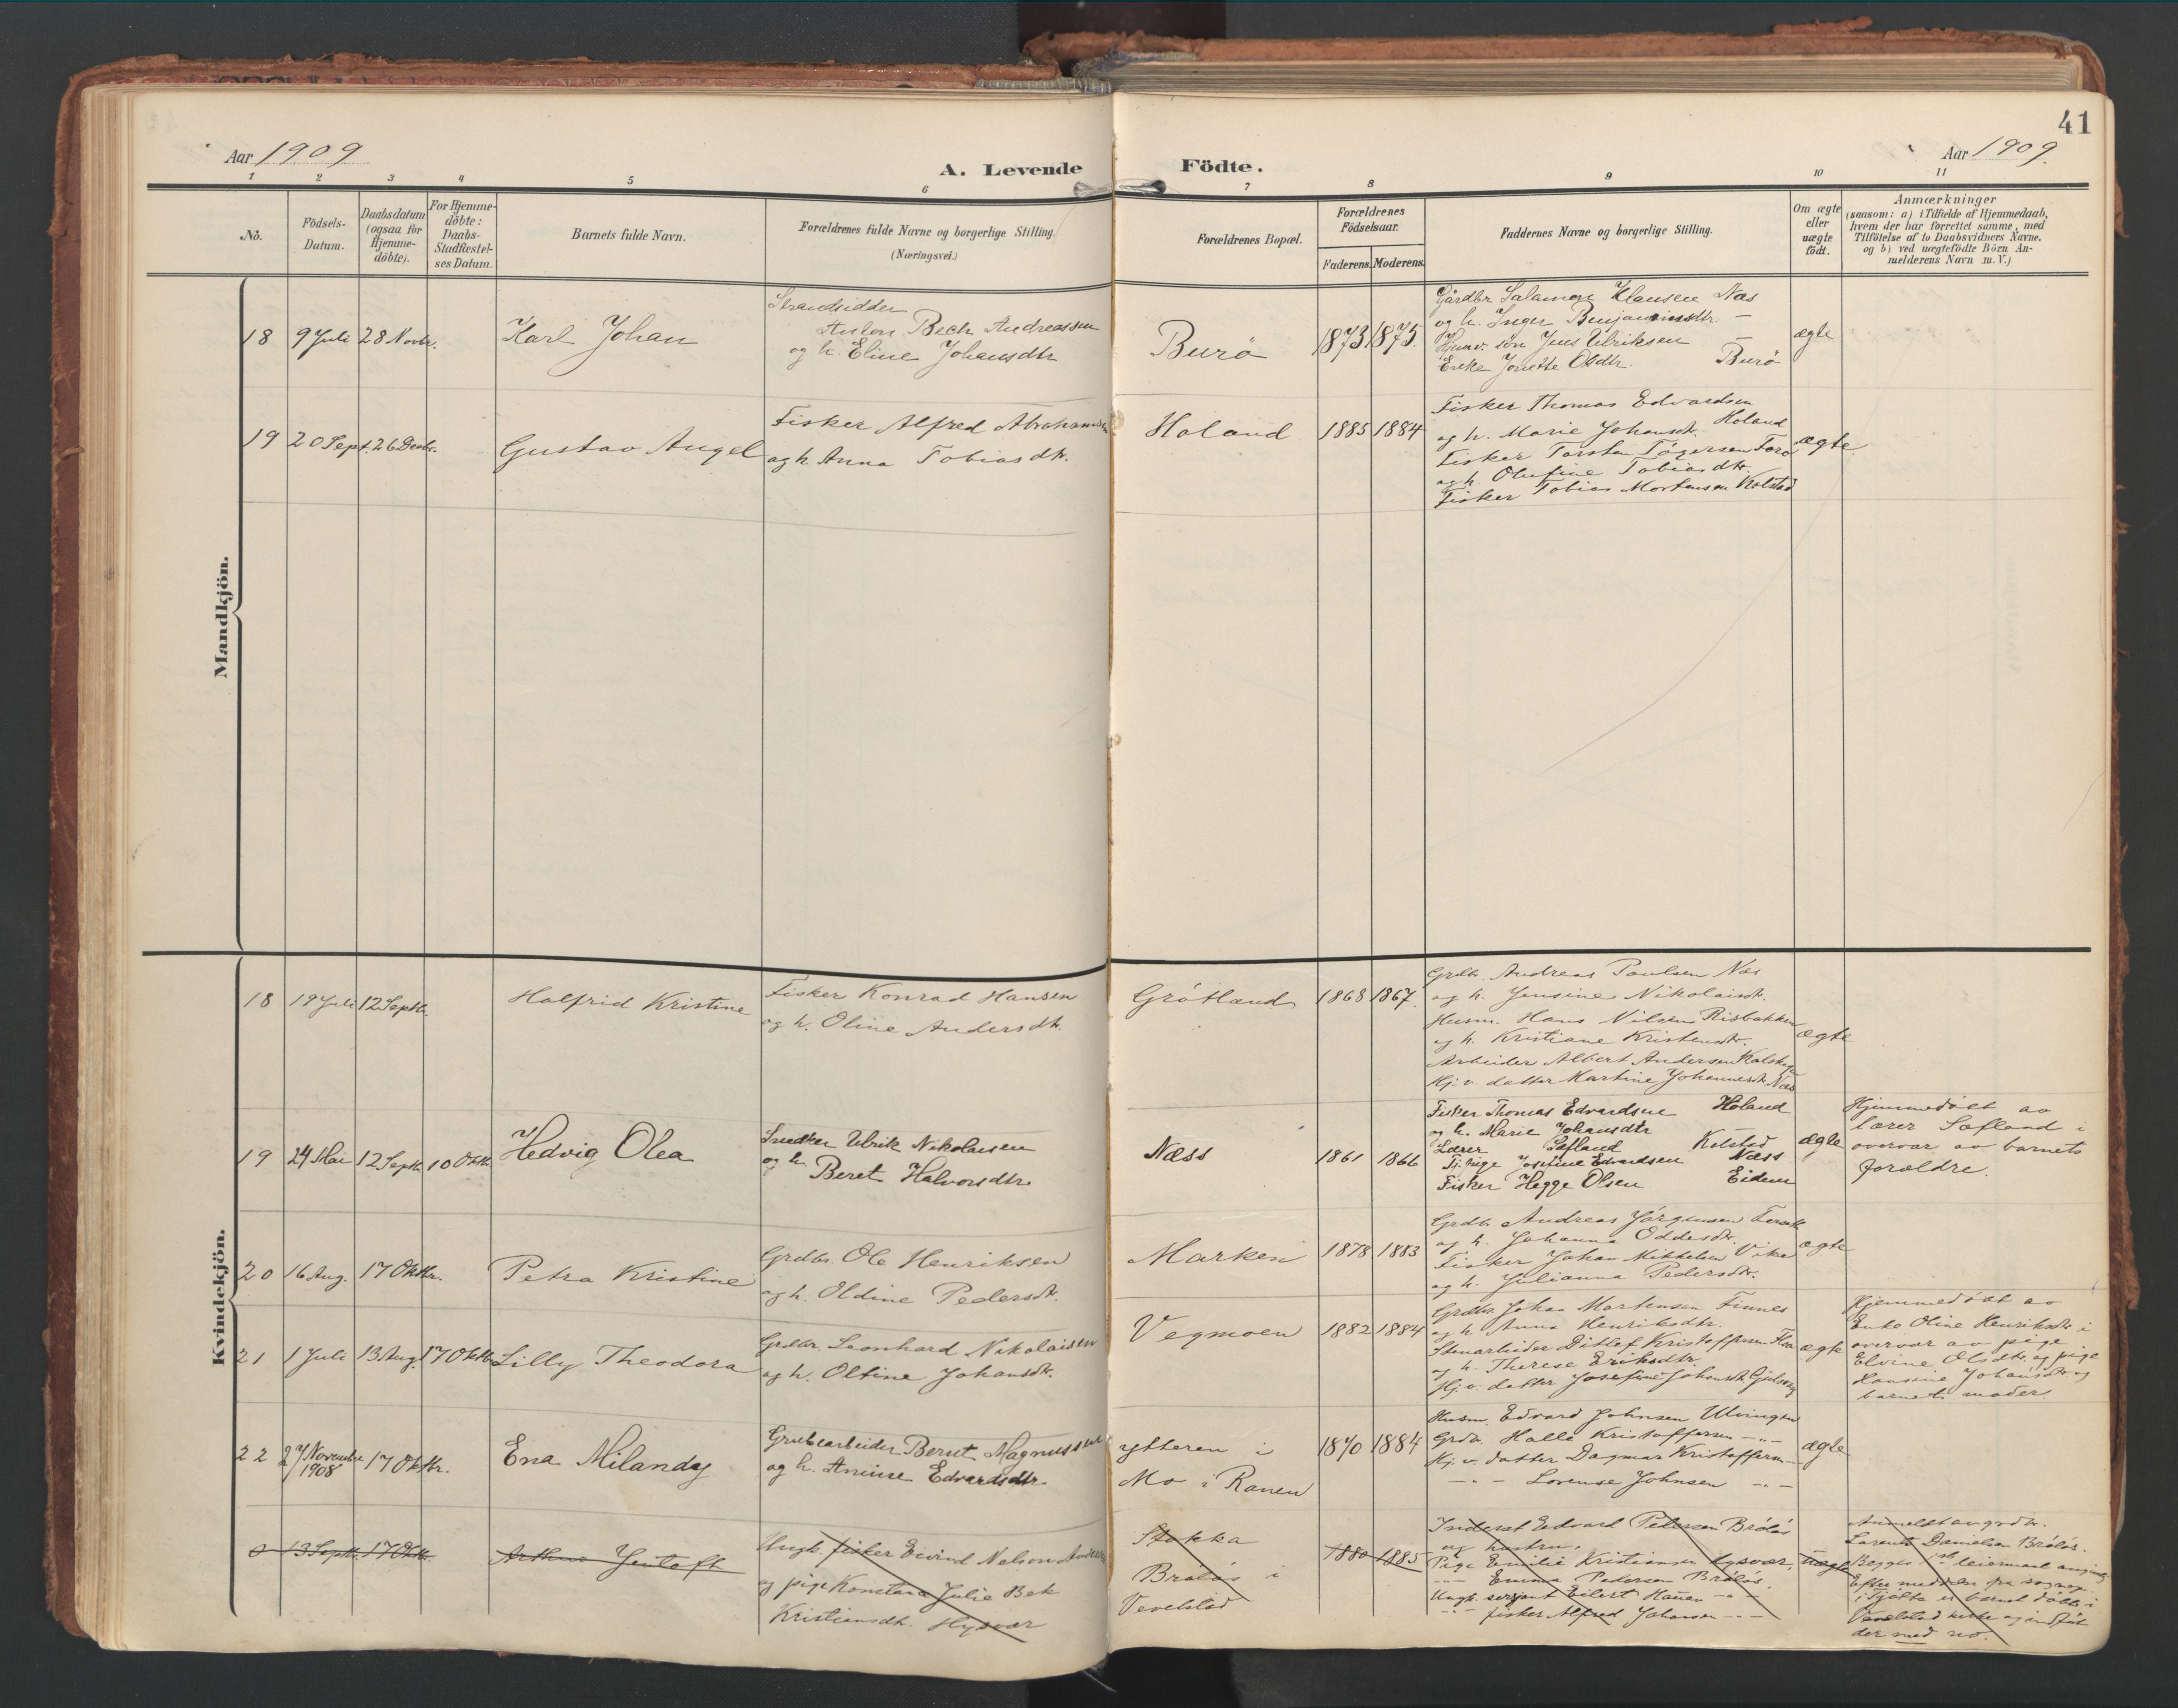 41
Aar 1909
Aar 1909.
A. Levende Födte.
1 2 3 4 5 6 7 8 9 10 11
No.
Födsels-
Datum.
Daabsdatum
(ogsaa for
Hjemme-
döbte).
For Hjemme-
döbte:
Daabs-
Stadfæstel-
ses Datum.
Barnets fulde Navn.
Forældrenes fulde Navne og borgerlige Stilling.
(Næringsvei.)
Forældrenes Bopæl.
Forældrenes
Födselsaar.
Faderens. Moderens.
Faddernes Navne og borgerlige Stilling.
Om ægte
eller
uægte
födt.
Anmærkninger
(saasom: a) i Tilfælde af Hjemmedaab,
hvem der har forrettet samme, med
Tilföielse af to Daabsvidners Navne,
og b) ved uægtefödte Börn An-
melderens Navn m. V.)
Mandkjön.
18 9 Juli 28 Novbr. Karl Johan
Strandsidder
Anton Bech Andreassen
og h. Eline Johansdtr
Burö
1873 1875.
Gårdbr Salamon Klausen Næs
og h. Inger Benjaminsdtr. —
søn Jens Ulriksen —
Enke Jonette Olsdtr. Burö
ægte
19 20 Sept. 26 Decbr. Gustav Angel
Fisker Alfred Abrahamsen
og h. Anna Tobiasdtr.
Høland
1885 1884
Fisker Thomas Edvardsen
og h. Marie Johansdtr. Høland
Fisker Torsten Tögersen Forö
og h. Olufine Tobiasdtr.
Fisker Tobias Mortensen Kolstad
ægte
Kvindekjön.
18 19 Juli 12 Septbr. Halfrid Kristine
Fisker Konrad Hansen
og h. Oline Andersdtr.
Gråtland
1868 1867.
Grdbr. Andreas Paulsen Næs
og h. Jensine Nikolaisdtr.
Husm. Hans Nilsen Risbakken
og h. Kristiane Kristensdtr.
Arbeider Albert Andersen
Hj. v. datter Martine Johannesdtr. Næs
ægte
19 24 Mai 12 Septbr 10 Oktbr. Hedvig Olea
Snedker Ulrik Nikolaisen
og h. Beret Halvorsdtr.
Næss
1861 1866
Fisker Thomas Edvardsen Høland
og h. Marie Johansdtr —
Lærer Søfland Kolstad
Tj. pige Josefine Edvardsen Næss
Fisker Hegge Olsen Eidem
ægte
Hjemmedöbt av
lærer Søfland i
overvær av barnets
forældre.
20 16 Aug. 17 Oktbr. Petra Kristine
Grdbr. Ole Henriksen
og h. Oldine Pedersdtr.
Marken
1878 1883
Grdbr. Andreas Jörgensen
og h. Johanna Oddesdtr.
Fisker Johan Mikkelsen Vika
og h. Julianna Pedersdtr.
ægte
21 1 Juli 13 Aug. 17 Oktbr Lilly Theodora
Grdbr. Leonhard Nikolaisen
og h. Oltine Johansdtr.
Vegmoen
1882 1884
Grdbr. Johan Martensen Finnes
og h. Anna Henriksdtr.
Stenarbeider Ditlef Kristoffersen
og h. Therese Eriksdtr.
Hj. v. datter Josefine Johansdtr.
ægte
Hjemmedöbt av
Enke Oline Henriksdtr i
overvær av pige
Elvine Olsdtr. og pige
Hansine Johansdtr. og
barnets moder.
22 27 November 1908 17 Oktbr. Ena Milandy
Grubearbeider Bernt Magnussen
og h. Annine Edvardsdtr.
ytteren i
Mo i Ranen
1870 1884
Husm. Edvard Johnsen Ulvingen
Grdbr. Halle Kristoffersen —"—
Hj. v. datter Dagmar Kristoffersen —
—"— Lorense Johnsen —"—
ægte
0 13 Septbr. 17 Oktbr. Arthur Jentoft
Ungk. fisker Eivind Nelson
og pige Konstanse Julie Bek
Kristiansdtr. Hysvær
Stokka
Bröløs i
Vevelstad
1880 1885
Inderst Edvard Pedersen Bröløs
og hustru.
Pige Emilie Kristiansen Hysvær
—"— Emma Pedersen Bröløs.
Ungk. serjant Eilert Hansen —"—
—"— fisker Alfred Johansen —"—
uægte
Anmeldt av grdbr.
Laurents Danielsen Bröløs.
Begges 1st leiermaal
Efter meddelelse fra sognepr.
i Tjøtta er barnet döbt i
Vevelstad kirke og indført
der med no.